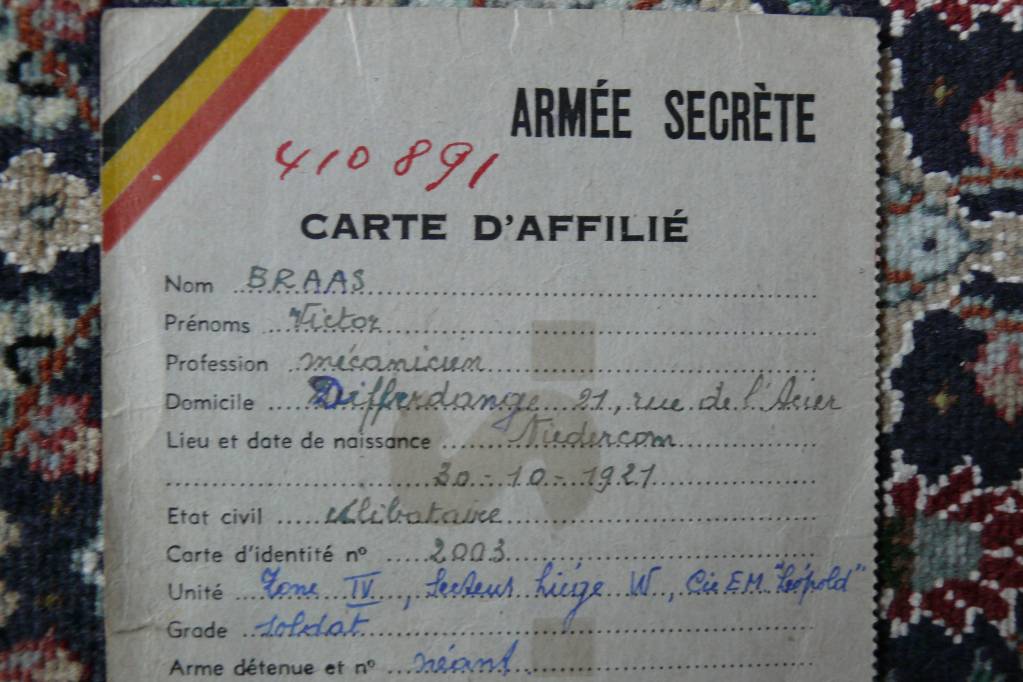 ARMÉE SECRÈTE
410891
CARTE D'AFFILIÉ
Nom BRAAS
Prénoms Victor
Profession mécanicien
Domicile Differdange 21, rue de l'Acier
Lieu et date de naissance Niedercorn
30-10-1921
Etat civil célibataire
Carte d'identité nº 2003
Unité Zone IV, Secteur Liége W, Cie EM "Léopold"
Grade soldat
Arme détenue et nº néant